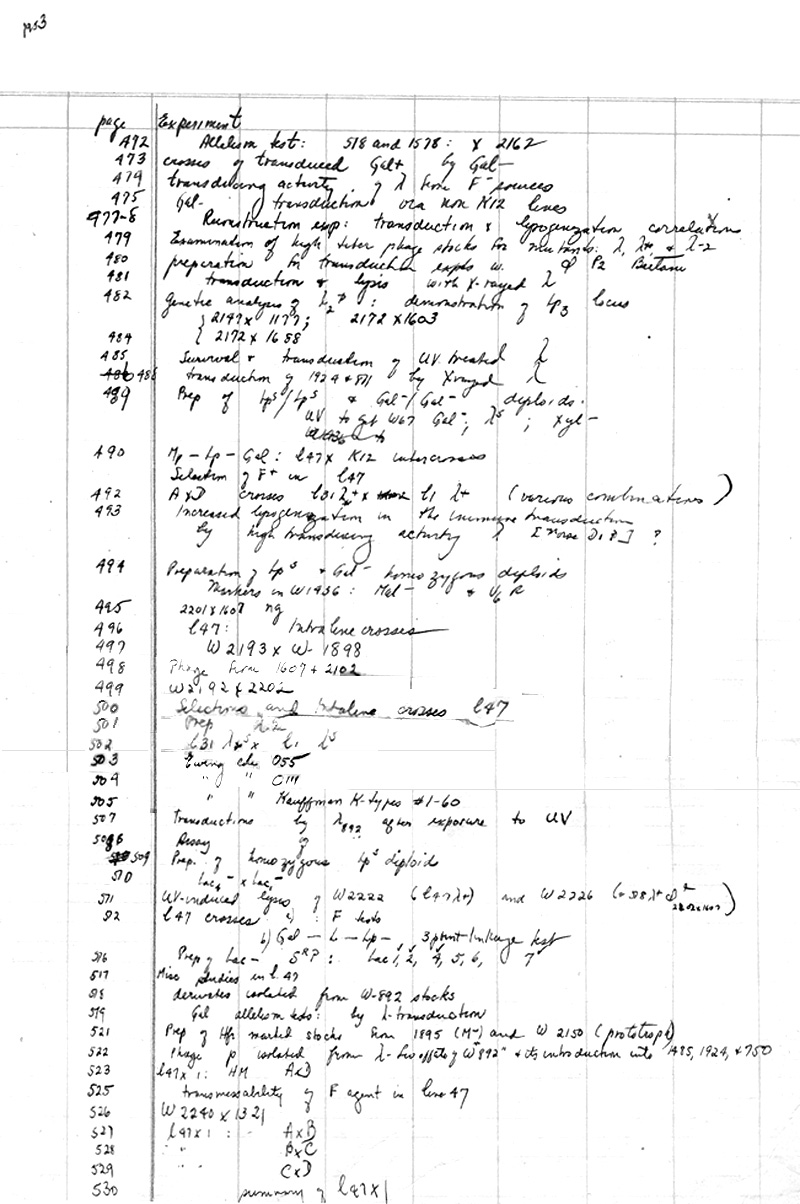 1953
page Experiment
472 Allelism test: 518 and 1578: x 2162
473 crosses of transduced Gal+ by Gal-
474 transducing activity of λ from F- sources
475 Gal- transductions via non K12 lines
477-8 Reconstruction exp: transduction & lysogenization correlation
479 Examination of high titer phage stocks for mutants: λ, λ++ & λ-2
480 preparation for transduction expts w. φ P2 Bertani
481 transduction & lysis with X-rayed λ
482 Genetic analysis of λ2: demonstration of Lp3 locus
{ 2147 x 1177; 2172 x 1603
484 { 2172 x 1688
485 Survival & transduction of UV treated λ
488 transduction of 1924 & 811 by Xrayed λ
489 Prep of LpS/LpS & Gal-/Gal- diploids.
UV to get W67 Gal-; λS; Xyl-
490 Mp-Lp-Gal: l47 x K12 intercrosses
Selection of F+ in l47
492 AxD crosses l31 λ+ x l1 λ+ (various combinations)
493 Increased lysogenization in the immune transduction
by high transducing activity λ ?
494 Preparation of LpS & Gal- homozygous diploids
Markers in W1436: Mal- & V6R
495 2201 x 1607 ng
496 l47: Intraline crosses
497 W2193 x W-1898
498 Phage from 1607 + 2102
499 W2192 x 2202
500 Selections and Intraline crosses l47
501 Prep
502 l31 x l1 λS
503 Ewing cltr 055
504 " " 0111
505 " " Kauffman K-types #1-60
507 Transductions by λ892 after exposure to UV
508 Assay of
509 Prep. of homozygous LpS diploid
510 Lac4- x Lac1-
511 UV-induced lysis of W2222 (l47λ+) and W2226
512 l47 crosses a): F tests
b) Gal-L-Lp-, 3 point linkage test
516 Prep of Lac- SRP: Lac 1, 2, 4, 5, 6, 7
517 Misc studies in l.47
518 derivates isolated from W-892 stocks
519 Gal allelism tests: by λ-transduction
521 Prep of Hfr marked stocks from 1895 (M-) and W 2150 (prototroph)
522 Phage p isolated from λ- lysates of W892 & its introduction into 1485, 1924, & 750
523 l47 x 1: HM AxD
525 transmissability of F agent in line 47
526 W2240 x 1321
527 l47 x 1: AxB
528 " " BxC
529 " " CxD
530 summary of l47x1